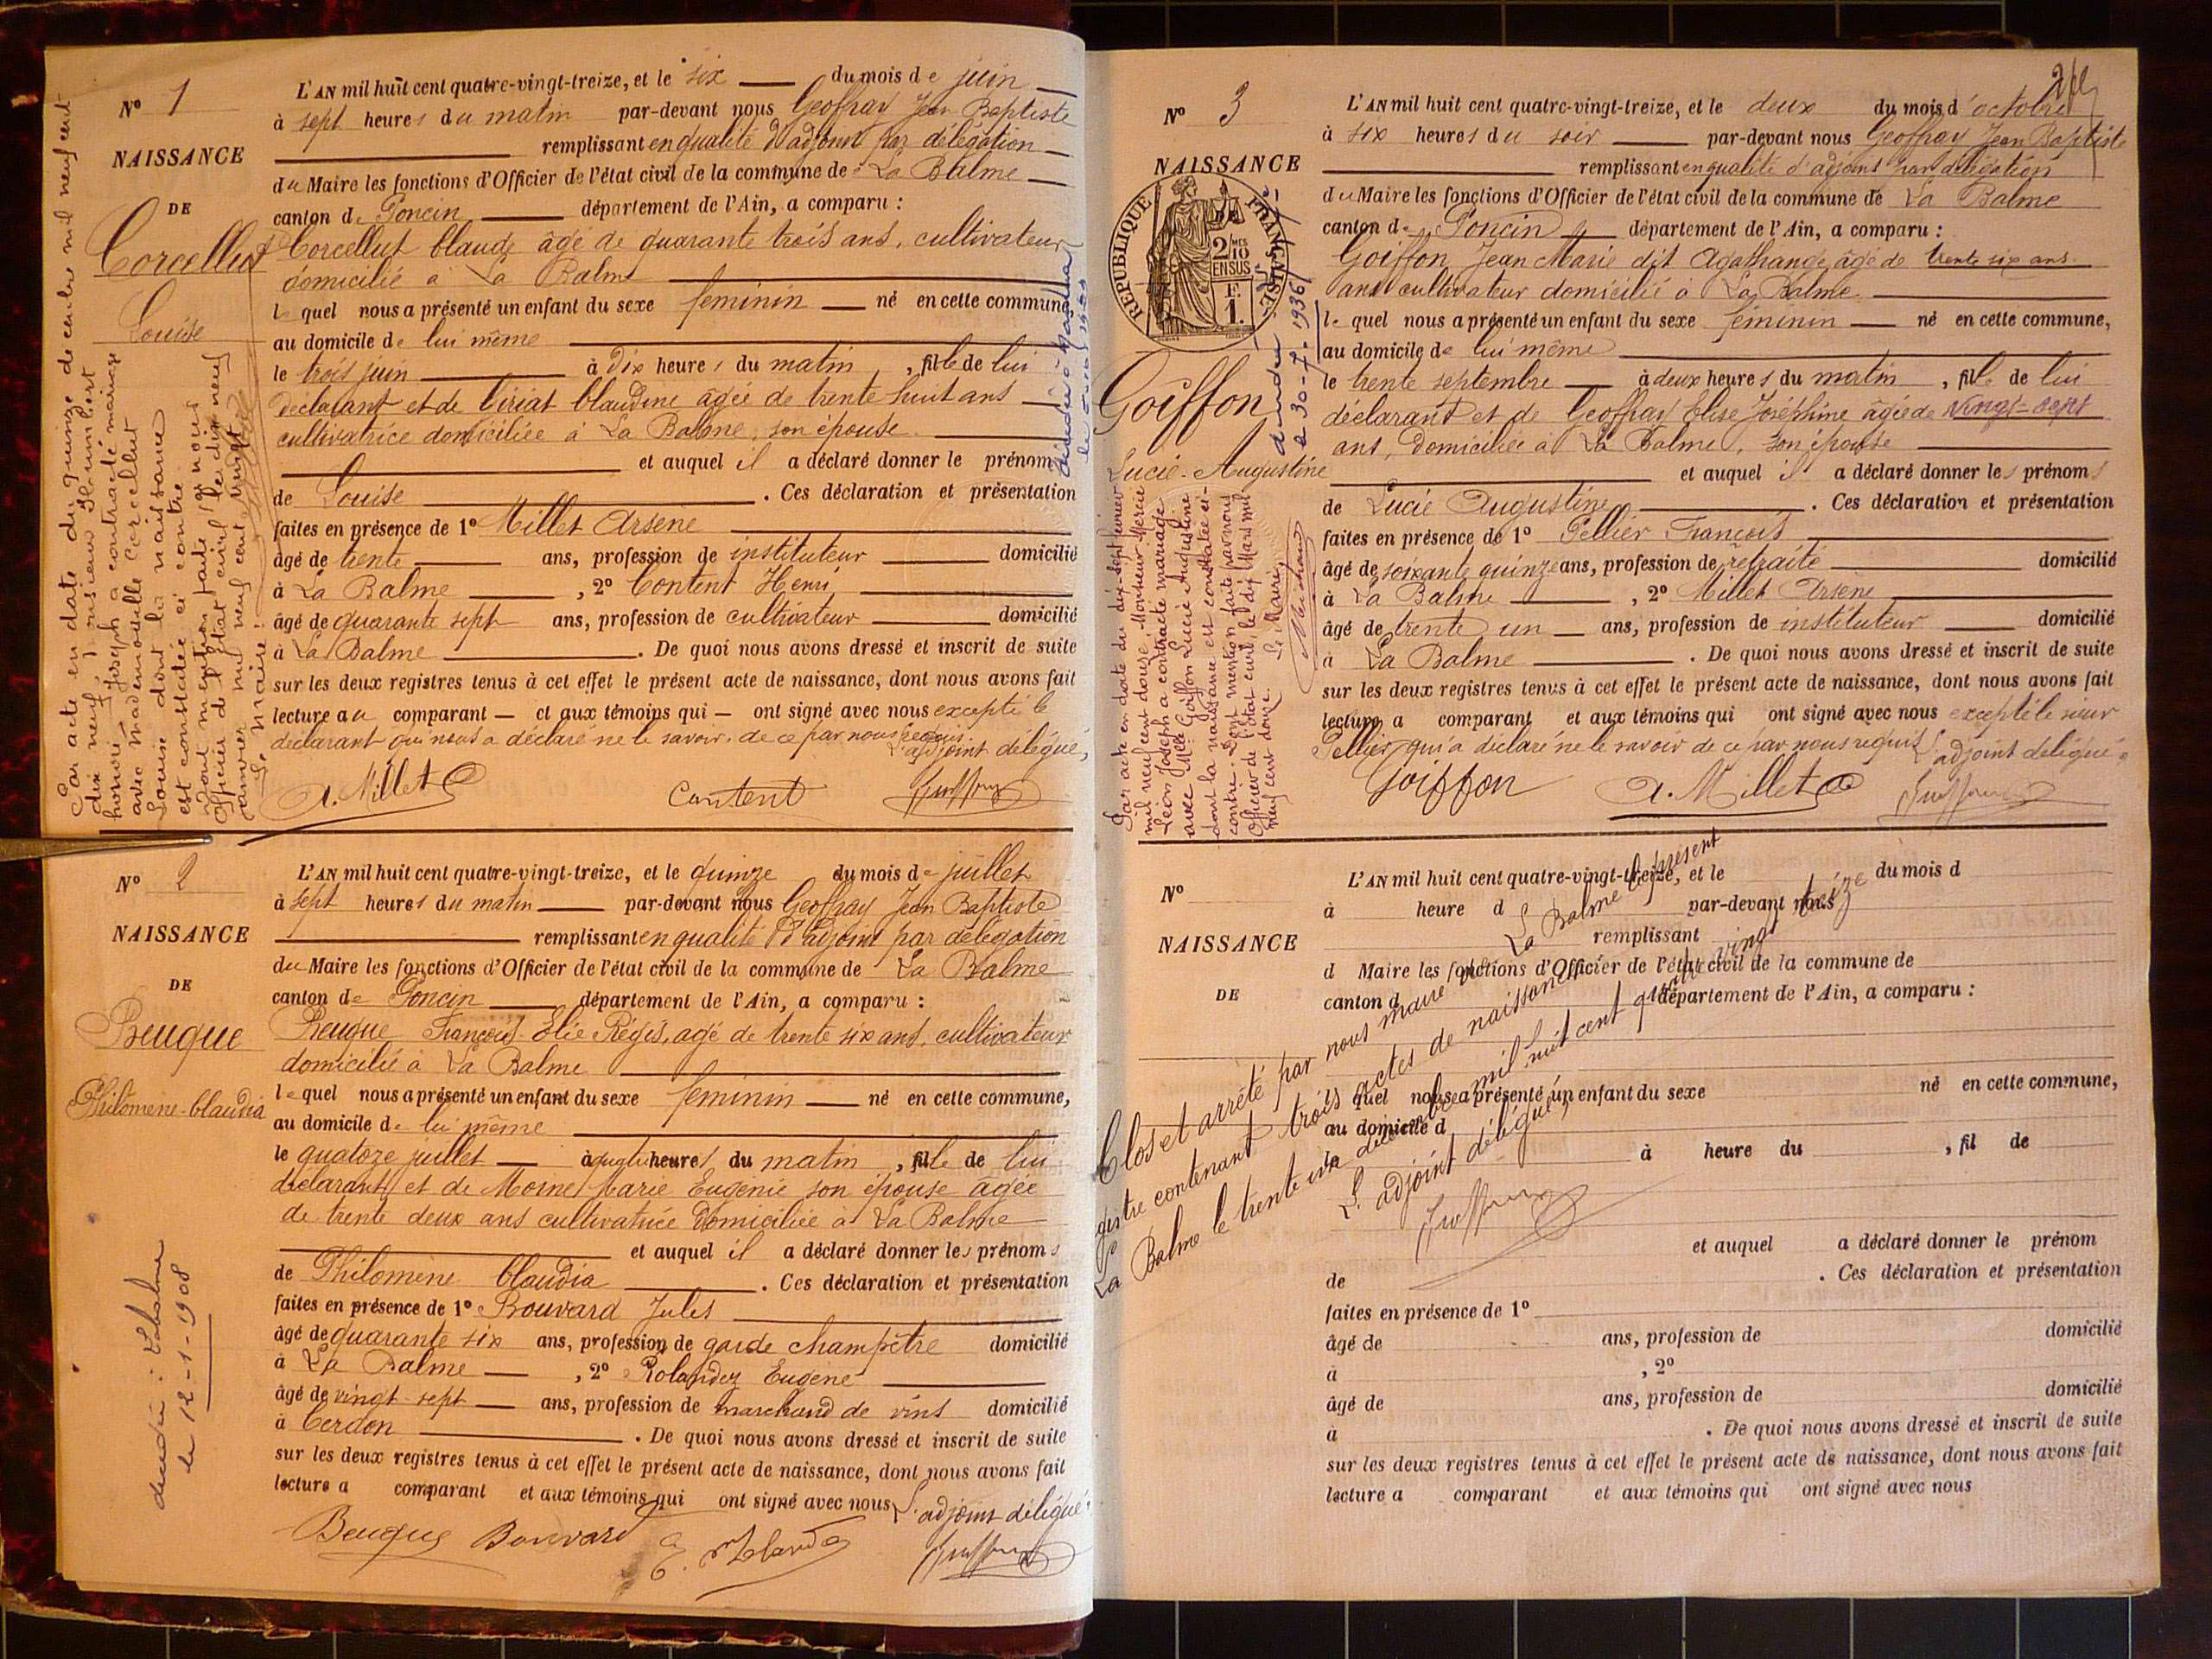 L'AN mil huit cent quatre-vingt-treize, et le six du mois de juin
N° 1
à sept heures du matin par-devant nous Geoffray Jean Baptiste
remplissant en qualité d'adjoint par délégation
NAISSANCE
du Maire les fonctions d'Officier de l'état civil de la commune de La Balme
DE
canton de Poncin département de l'Ain, a comparu :
Corcellut
Corcellut Claude âgé de quarante trois ans, cultivateur
domicilié à La Balme
Louise
lequel nous a présenté un enfant du sexe feminin né en cette commune,
au domicile de lui même
le trois juin à dix heures du matin, fille de lui
déclarant et de Ciriat Claudine âgée de trente huit ans
cultivatrice domiciliée à La Balme, son épouse.
et auquel il a déclaré donner le prénom
de Louise . Ces déclaration et présentation
faites en présence de 1° Millet Arsène
âgé de trente ans, profession de instituteur domicilié
à La Balme , 2° Content Henri
âgé de quarante sept ans, profession de cultivateur domicilié
à La Balme . De quoi nous avons dressé et inscrit de suite
sur les deux registres tenus à cet effet le présent acte de naissance, dont nous avons fait
lecture au comparant et aux témoins qui ont signé avec nous excepté le
déclarant qui nous a déclaré ne le savoir, de ce par nous requis.
L'adjoint délégué,
A. Millet Content
Par acte en date du quinze décembre mil neuf cent
dix neuf, Monsieur
Joseph a contracté mariage
avec mademoiselle Corcellut
Louise dont la naissance
est constatée ci contre
Dont mention faite par nous
Officier de l'état civil le dix neuf
janvier mil neuf cent vingt
Le maire :
L'AN mil huit cent quatre-vingt-treize, et le quinze du mois de juillet
N° 2
à sept heures du matin par-devant nous Geoffray Jean Baptiste
NAISSANCE
remplissant en qualité d'adjoint par délégation
du Maire les fonctions d'Officier de l'état civil de la commune de La Balme
DE
canton de Poncin département de l'Ain, a comparu :
Beuque
Beuque François Elie Régis, agé de trente six ans, cultivateur
domicilié à La Balme
Philomène Claudia
lequel nous a présenté un enfant du sexe feminin né en cette commune,
au domicile de lui même
le quatorze juillet à heures du matin, fille de lui
déclarant et de Mornel Marie Eugénie son épouse agée
de trente deux ans cultivatrice domiciliée à La Balme
et auquel il a déclaré donner les prénoms
de Philomène Claudia . Ces déclaration et présentation
faites en présence de 1° Bouvard Jules
âgé de quarante six ans, profession de garde champêtre domicilié
à La Balme , 2° Rolandez Eugène
âgé de vingt sept ans, profession de marchand de vins domicilié
à Cerdon . De quoi nous avons dressé et inscrit de suite
sur les deux registres tenus à cet effet le présent acte de naissance, dont nous avons fait
lecture a comparant et aux témoins qui ont signé avec nous
L'adjoint délégué
Beuque Bouvard
décédée : Labalme
le 12-1-1908
L'AN mil huit cent quatre-vingt-treize, et le deux du mois d'octobre
N° 3
à six heures du soir par-devant nous Geoffray Jean Baptiste
NAISSANCE
remplissant en qualité d'adjoint par délégation
du Maire les fonctions d'Officier de l'état civil de la commune de La Balme
canton de Poncin département de l'Ain, a comparu :
REPUBLIQUE FRANÇAISE
2/10 EN SUS
F. 1.
Goiffon Jean Marie dit Agathange âgé de trente six ans
ans cultivateur domicilié à La Balme
lequel nous a présenté un enfant du sexe féminin né en cette commune,
au domicile de lui même
Goiffon
le trente septembre à deux heures du matin, fille de lui
déclarant et de Geoffray Elise Joséphine âgée de vingt-sept
ans, domiciliée à La Balme, son épouse
Lucie-Augustine
et auquel il a déclaré donner les prénoms
de Lucie Augustine . Ces déclaration et présentation
faites en présence de 1° Pellier François
âgé de soixante quinze ans, profession de retraité domicilié
à La Balme , 2° Millet Arsène
âgé de trente un ans, profession de instituteur domicilié
à La Balme . De quoi nous avons dressé et inscrit de suite
sur les deux registres tenus à cet effet le présent acte de naissance, dont nous avons fait
lecture a comparant et aux témoins qui ont signé avec nous excepté le sieur
Pellier, qui a déclaré ne le savoir de ce par nous requis. L'adjoint délégué
Goiffon A. Millet
Par acte en date du dix-sept février
mil neuf cent douze, Monsieur Mercie
Léon Joseph a contracté mariage
avec Melle Goiffon Lucie Augustine
dont la naissance est constatée ci-
contre. Dont mention faite par nous
Officier de l'état civil, le dix Mars mil
neuf cent douze. Le Maire,
le 30-7-1936
N°
L'AN mil huit cent quatre-vingt-treize, et le du mois d
à heure d par-devant nous
NAISSANCE
remplissant
d Maire les fonctions d'Officier de l'état civil de la commune de
DE
canton d département de l'Ain, a comparu :
quel nous a présenté un enfant du sexe né en cette commune,
au domicile d
le à heure du , fil de
et auquel a déclaré donner le prénom
de . Ces déclaration et présentation
faites en présence de 1°
âgé de ans, profession de domicilié
à , 2°
âgé de ans, profession de domicilié
à . De quoi nous avons dressé et inscrit de suite
sur les deux registres tenus à cet effet le présent acte de naissance, dont nous avons fait
lecture a comparant et aux témoins qui ont signé avec nous
Clos et arrêté par nous maire de La Balme le présent
registre contenant trois actes de naissance
La Balme le trente un décembre mil huit cent quatre vingt treize
L'adjoint délégué,